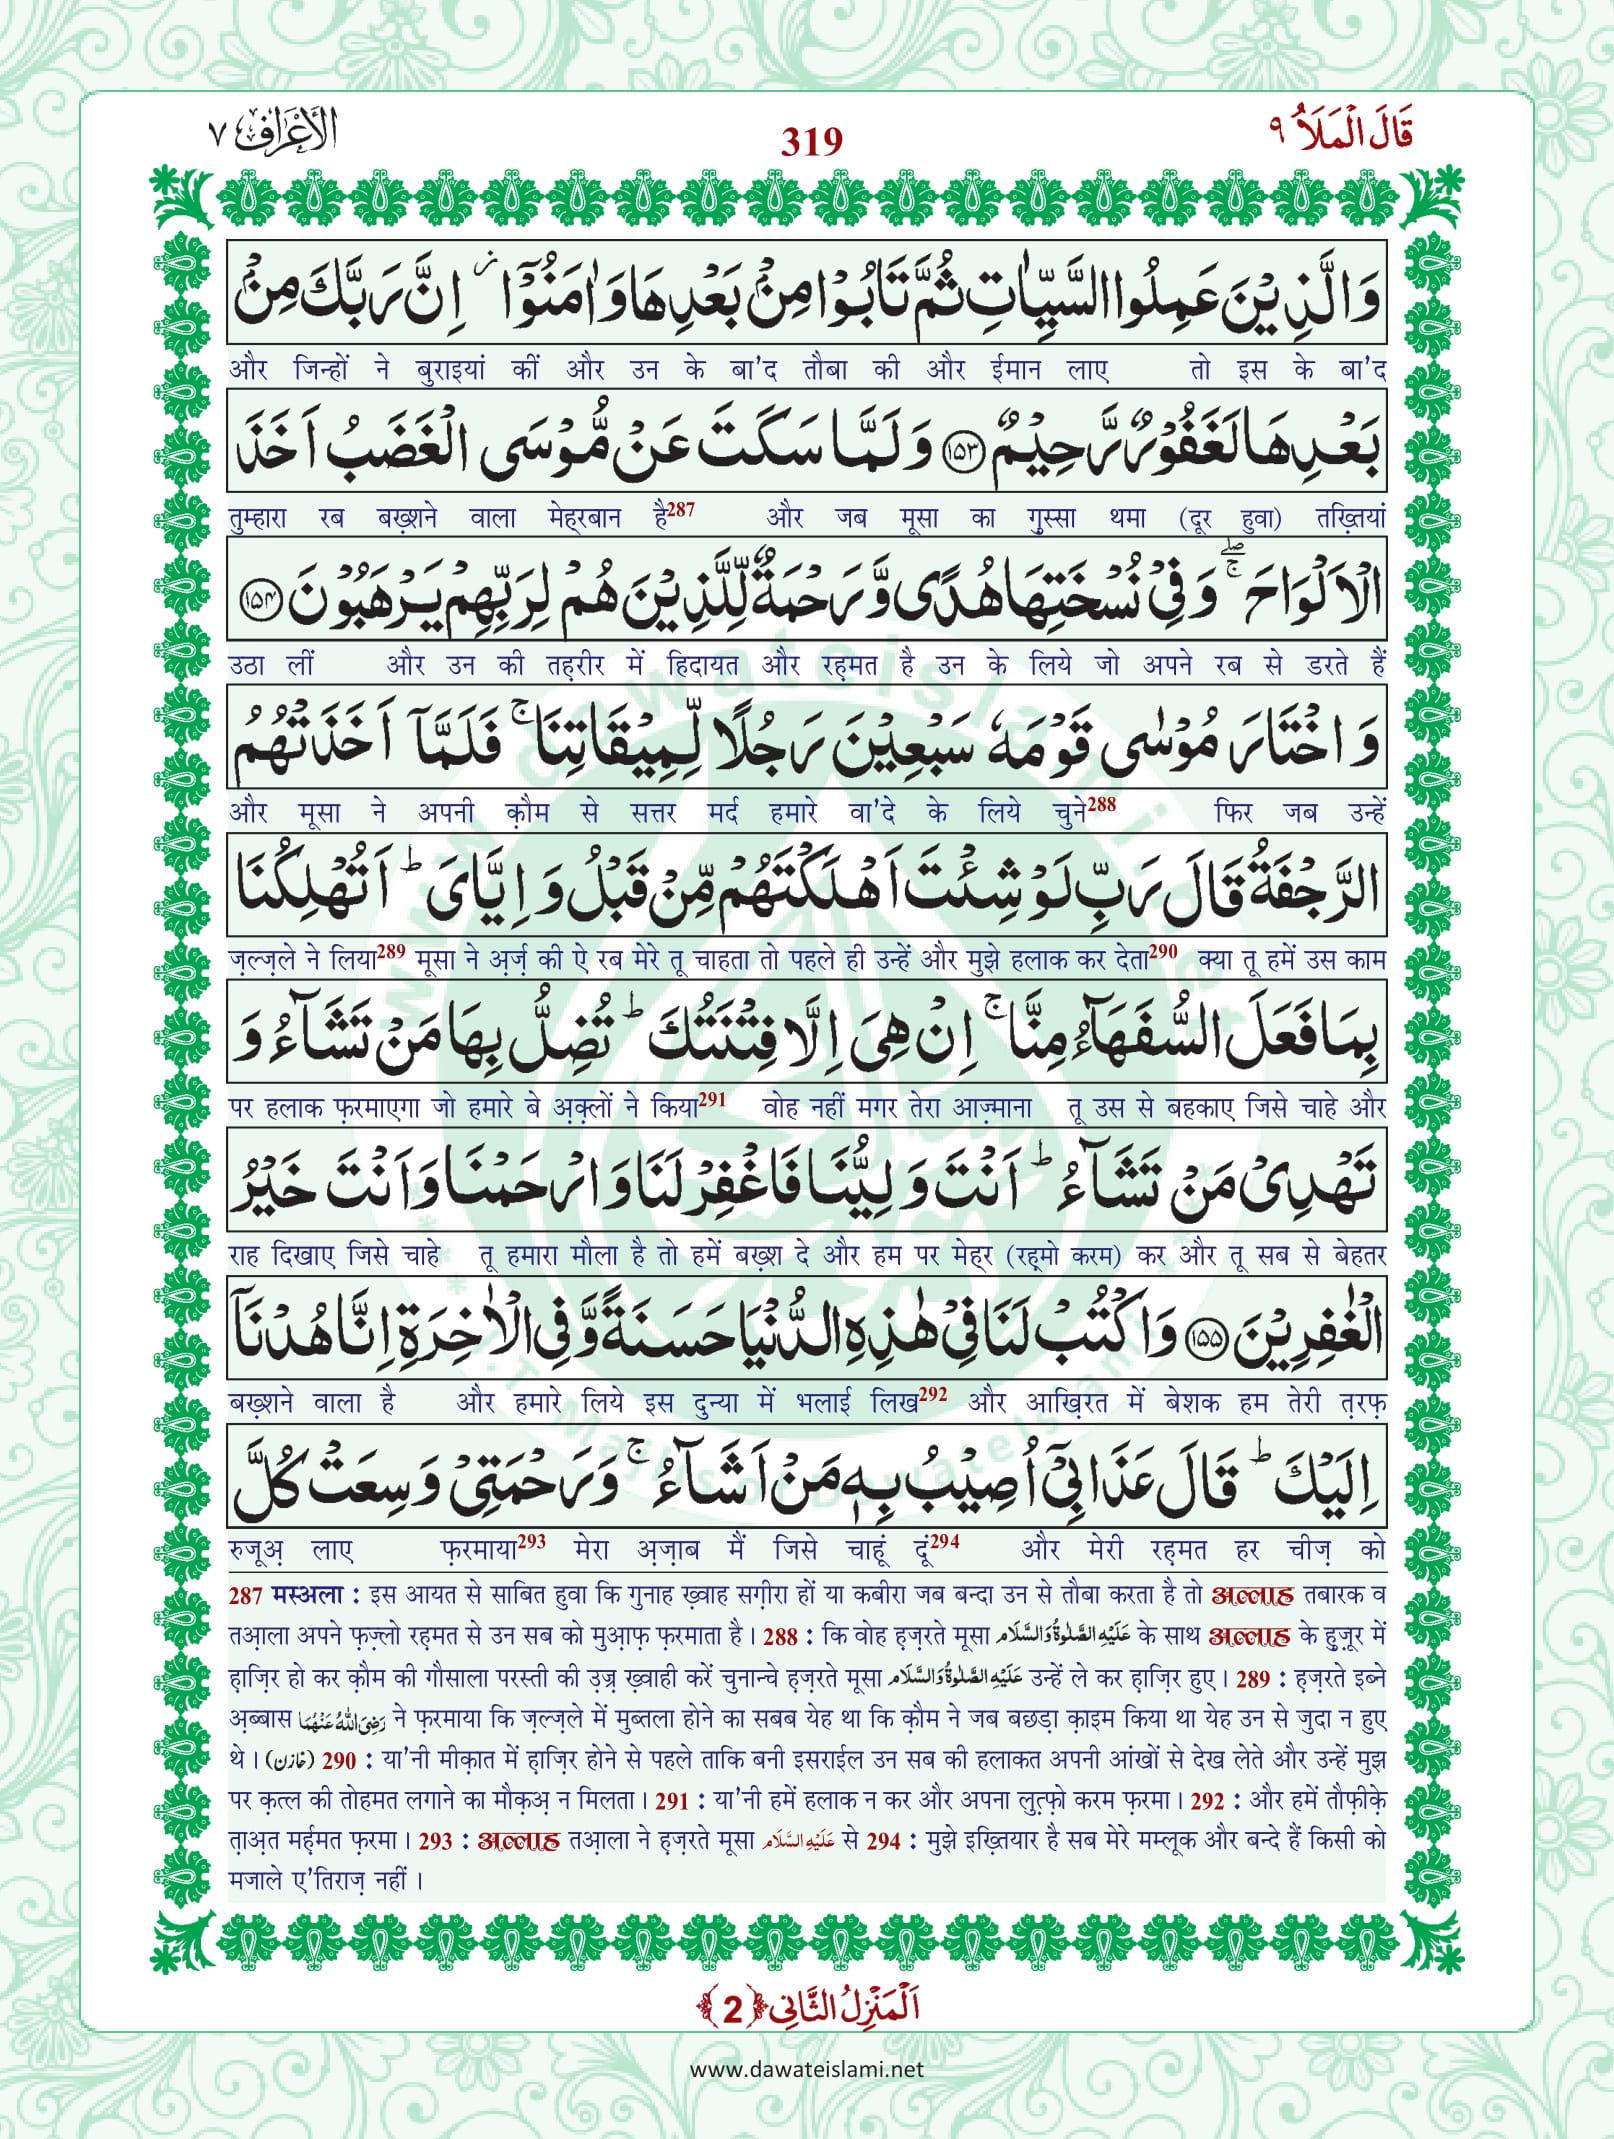 قَالَ الْمَلَاُ ٩
319
الْاَعْرَاف ٧
وَالَّذِيْنَ عَمِلُوا السَّيِّاٰتِ ثُمَّ تَابُوْا مِنْۢ بَعْدِهَا وَاٰمَنُوْۤا ؗ اِنَّ رَبَّكَ مِنْۢ
और जिन्हों ने बुराइयां कीं और उन के बा'द तौबा की और ईमान लाए तो इस के बा'द
بَعْدِهَا لَغَفُوْرٌ رَّحِيْمٌ ﴿۱۵۳﴾ وَلَمَّا سَكَتَ عَنْ مُّوْسَى الْغَضَبُ اَخَذَ
तुम्हारा रब बख़्शने वाला मेह्‌रबान है287 और जब मूसा का गुस्सा थमा (दूर हुवा) तख़्तियां
الْاَلْوَاحَ ۚۖ وَفِيْ نُسْخَتِهَا هُدًى وَّرَحْمَةٌ لِّلَّذِيْنَ هُمْ لِرَبِّهِمْ يَرْهَبُوْنَ ﴿۱۵۴﴾
उठा लीं और उन की तह़रीर में हिदायत और रह़मत है उन के लिये जो अपने रब से डरते हैं
وَاخْتَارَ مُوْسٰى قَوْمَهٗ سَبْعِيْنَ رَجُلًا لِّمِيْقَاتِنَا ۚ فَلَمَّاۤ اَخَذَتْهُمُ
और मूसा ने अपनी क़ौम से सत्तर मर्द हमारे वा'दे के लिये चुने288 फिर जब उन्हें
الرَّجْفَةُ قَالَ رَبِّ لَوْ شِئْتَ اَهْلَكْتَهُمْ مِّنْ قَبْلُ وَاِيَّايَ ؕ اَتُهْلِكُنَا
ज़ल्ज़ले ने लिया289 मूसा ने अ़र्ज़ की ऐ रब मेरे तू चाहता तो पहले ही उन्हें और मुझे हलाक कर देता290 क्या तू हमें उस काम
بِمَا فَعَلَ السُّفَهَآءُ مِنَّا ۚ اِنْ هِيَ اِلَّا فِتْنَتُكَ ؕ تُضِلُّ بِهَا مَنْ تَشَآءُ وَ
पर हलाक फ़रमाएगा जो हमारे बे अ़क़्लों ने किया291 वोह नहीं मगर तेरा आज़्माना तू उस से बहकाए जिसे चाहे और
تَهْدِيْ مَنْ تَشَآءُ ؕ اَنْتَ وَلِيُّنَا فَاغْفِرْ لَنَا وَارْحَمْنَا وَاَنْتَ خَيْرُ
राह दिखाए जिसे चाहे तू हमारा मौला है तो हमें बख़्श दे और हम पर मेह्‌र (रह़्मो करम) कर और तू सब से बेहतर
الْغٰفِرِيْنَ ﴿۱۵۵﴾ وَاكْتُبْ لَنَا فِيْ هٰذِهِ الدُّنْيَا حَسَنَةً وَّفِي الْاٰخِرَةِ اِنَّا هُدْنَاۤ
बख़्शने वाला है और हमारे लिये इस दुन्या में भलाई लिख292 और आख़िरत में बेशक हम तेरी त़रफ़
اِلَيْكَ ؕ قَالَ عَذَابِيْۤ اُصِيْبُ بِهٖ مَنْ اَشَآءُ ۚ وَرَحْمَتِيْ وَسِعَتْ كُلَّ
रुजूअ़ लाए फ़रमाया293 मेरा अ़ज़ाब मैं जिसे चाहूं दूं294 और मेरी रह़मत हर चीज़ को
287 मस्अला : इस आयत से साबित हुवा कि गुनाह ख़्वाह सग़ीरा हों या कबीरा जब बन्दा उन से तौबा करता है तो अल्लाह तबारक व
तआ़ला अपने फ़ज़्लो रह़मत से उन सब को मुआ़फ़ फ़रमाता है। 288 : कि वोह ह़ज़रते मूसा عَلَيْهِ الصَّلٰوةُ وَالسَّلَام के साथ अल्लाह के हुज़ूर में
ह़ाज़िर हो कर क़ौम की गौसाला परस्ती की उ़ज़्र ख़्वाही करें चुनान्चे ह़ज़रते मूसा عَلَيْهِ الصَّلٰوةُ وَالسَّلَام उन्हें ले कर ह़ाज़िर हुए। 289 : ह़ज़रते इब्ने
अ़ब्बास رَضِيَ اللهُ عَنْهُمَا ने फ़रमाया कि ज़ल्ज़ले में मुब्तला होने का सबब येह था कि क़ौम ने जब बछड़ा क़ाइम किया था येह उन से जुदा न हुए
थे। (خازن) 290 : या'नी मीक़ात में ह़ाज़िर होने से पहले ताकि बनी इसराईल उन सब की हलाकत अपनी आंखों से देख लेते और उन्हें मुझ
पर क़त्ल की तोहमत लगाने का मौक़अ़ न मिलता। 291 : या'नी हमें हलाक न कर और अपना लुत़्फ़ो करम फ़रमा। 292 : और हमें तौफ़ीक़े
त़ाअ़त मर्ह़मत फ़रमा। 293 : अल्लाह तआ़ला ने ह़ज़रते मूसा عَلَيْهِ السَّلَام से 294 : मुझे इख़्तियार है सब मेरे मम्लूक और बन्दे हैं किसी को
मजाले ए'तिराज़ नहीं।
اَلْمَنْزِلُ الثَّانِی ﴿2﴾
www.dawateislami.net